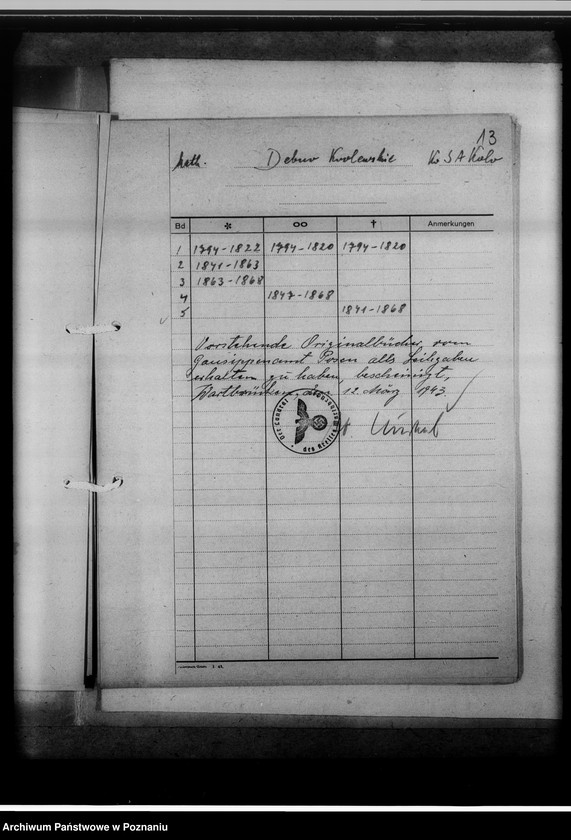 13
kath. Debno Krolewskie Kr. S A Kolo
Bd * ∞ † Anmerkungen
1 1794-1822 1794-1820 1794-1820
2 1841-1863
3 1863-1868
4 1847-1868
5 1841-1868
Vorstehende Originalbücher vom
Gausippenamt Posen als Leihgaben
erhalten zu haben, bescheinigt,
Wartbrücken, den 12. März 1943.
Der Landrat
des Kreises
Archiwum Państwowe w Poznaniu